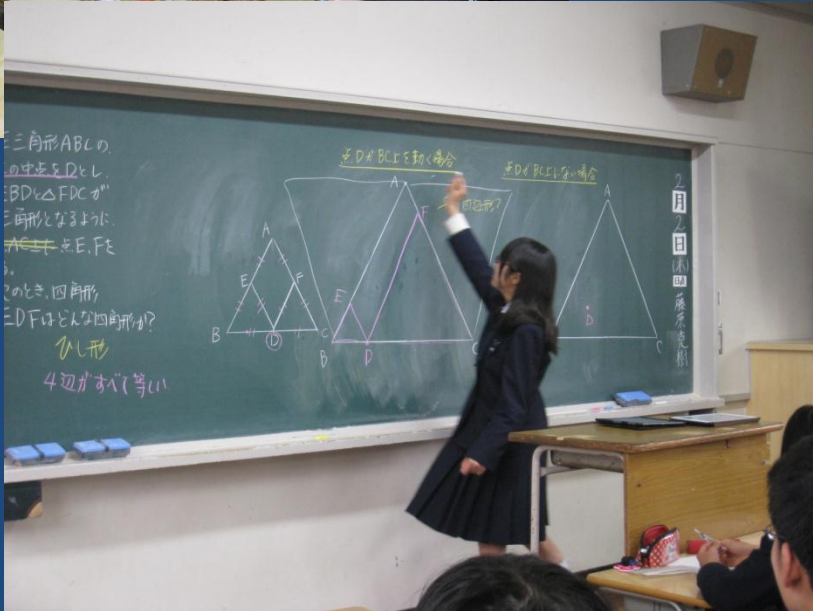 三角形ABCの、
の中点をDとし、
EBDと△FDCが
三角形となるように、
AC上に点E、Fを
る。
このとき、四角形
EDFはどんな四角形か?
ひし形
4辺がすべて等しい
A
E
F
B
D
C
点DがBC上を動く場合
四辺形?
A
F
E
B
D
C
点DがBC上にない場合
A
D
C
2
月
2
日
(木)
日直
藤原